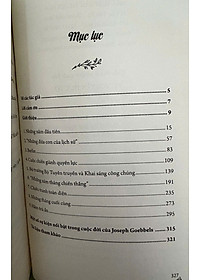 Mục lục
Về các tác giả 5
Lời cảm ơn 7
Giới thiệu 9
1. Những năm đầu tiên 15
2. "Những đứa con của lịch sử" 57
3. Berlin 83
4. Cuộc chiến giành quyền lực 109
5. Bộ trưởng Bộ Tuyên truyền và Khai sáng công chúng 139
6. "Những năm tháng chiến thắng" 191
7. Chiến tranh toàn diện 231
8. Những tháng cuối cùng 261
295
Một số sự kiện nổi bật trong cuộc đời của Joseph Goebbels 315
Tài liệu tham khảo 321
327